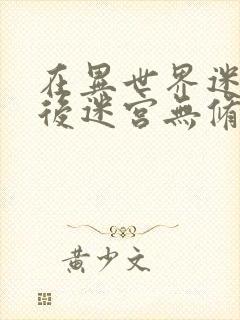 在異世界迷
後迷宮無脩
黃少文